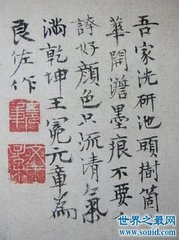 吾家洗研池頭樹箇
華開澹墨痕不要
誇好顏色只流清氣
滿乾坤王冕元章為
良佐作
世界之最网
www.souid.com